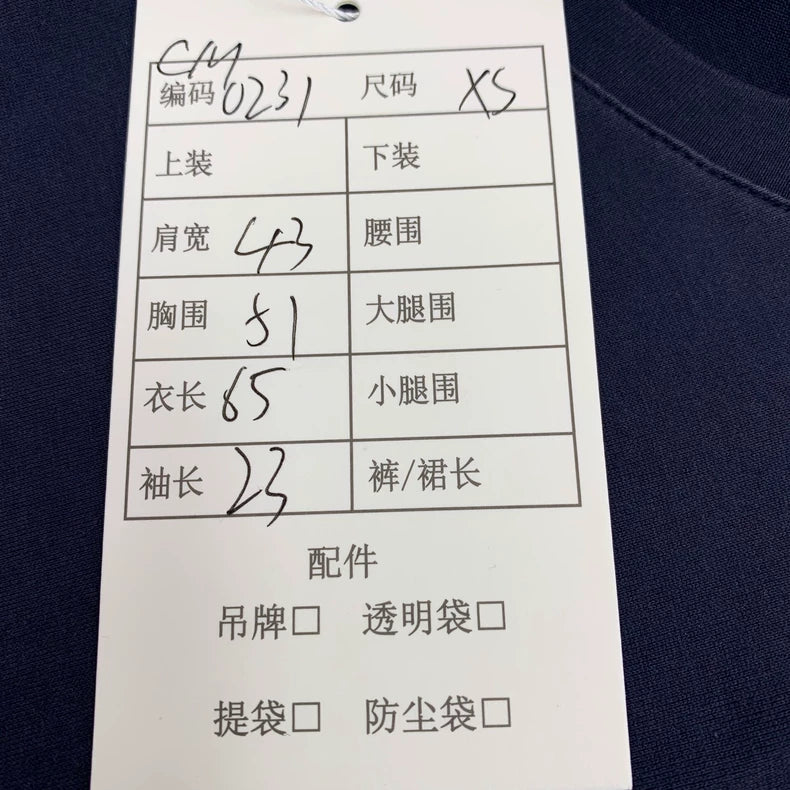 CM
编码 0231 尺码 XS
上装 下装
肩宽 43 腰围
胸围 51 大腿围
衣长 65 小腿围
袖长 23 裤/裙长
配件
吊牌□ 透明袋□
提袋□ 防尘袋□